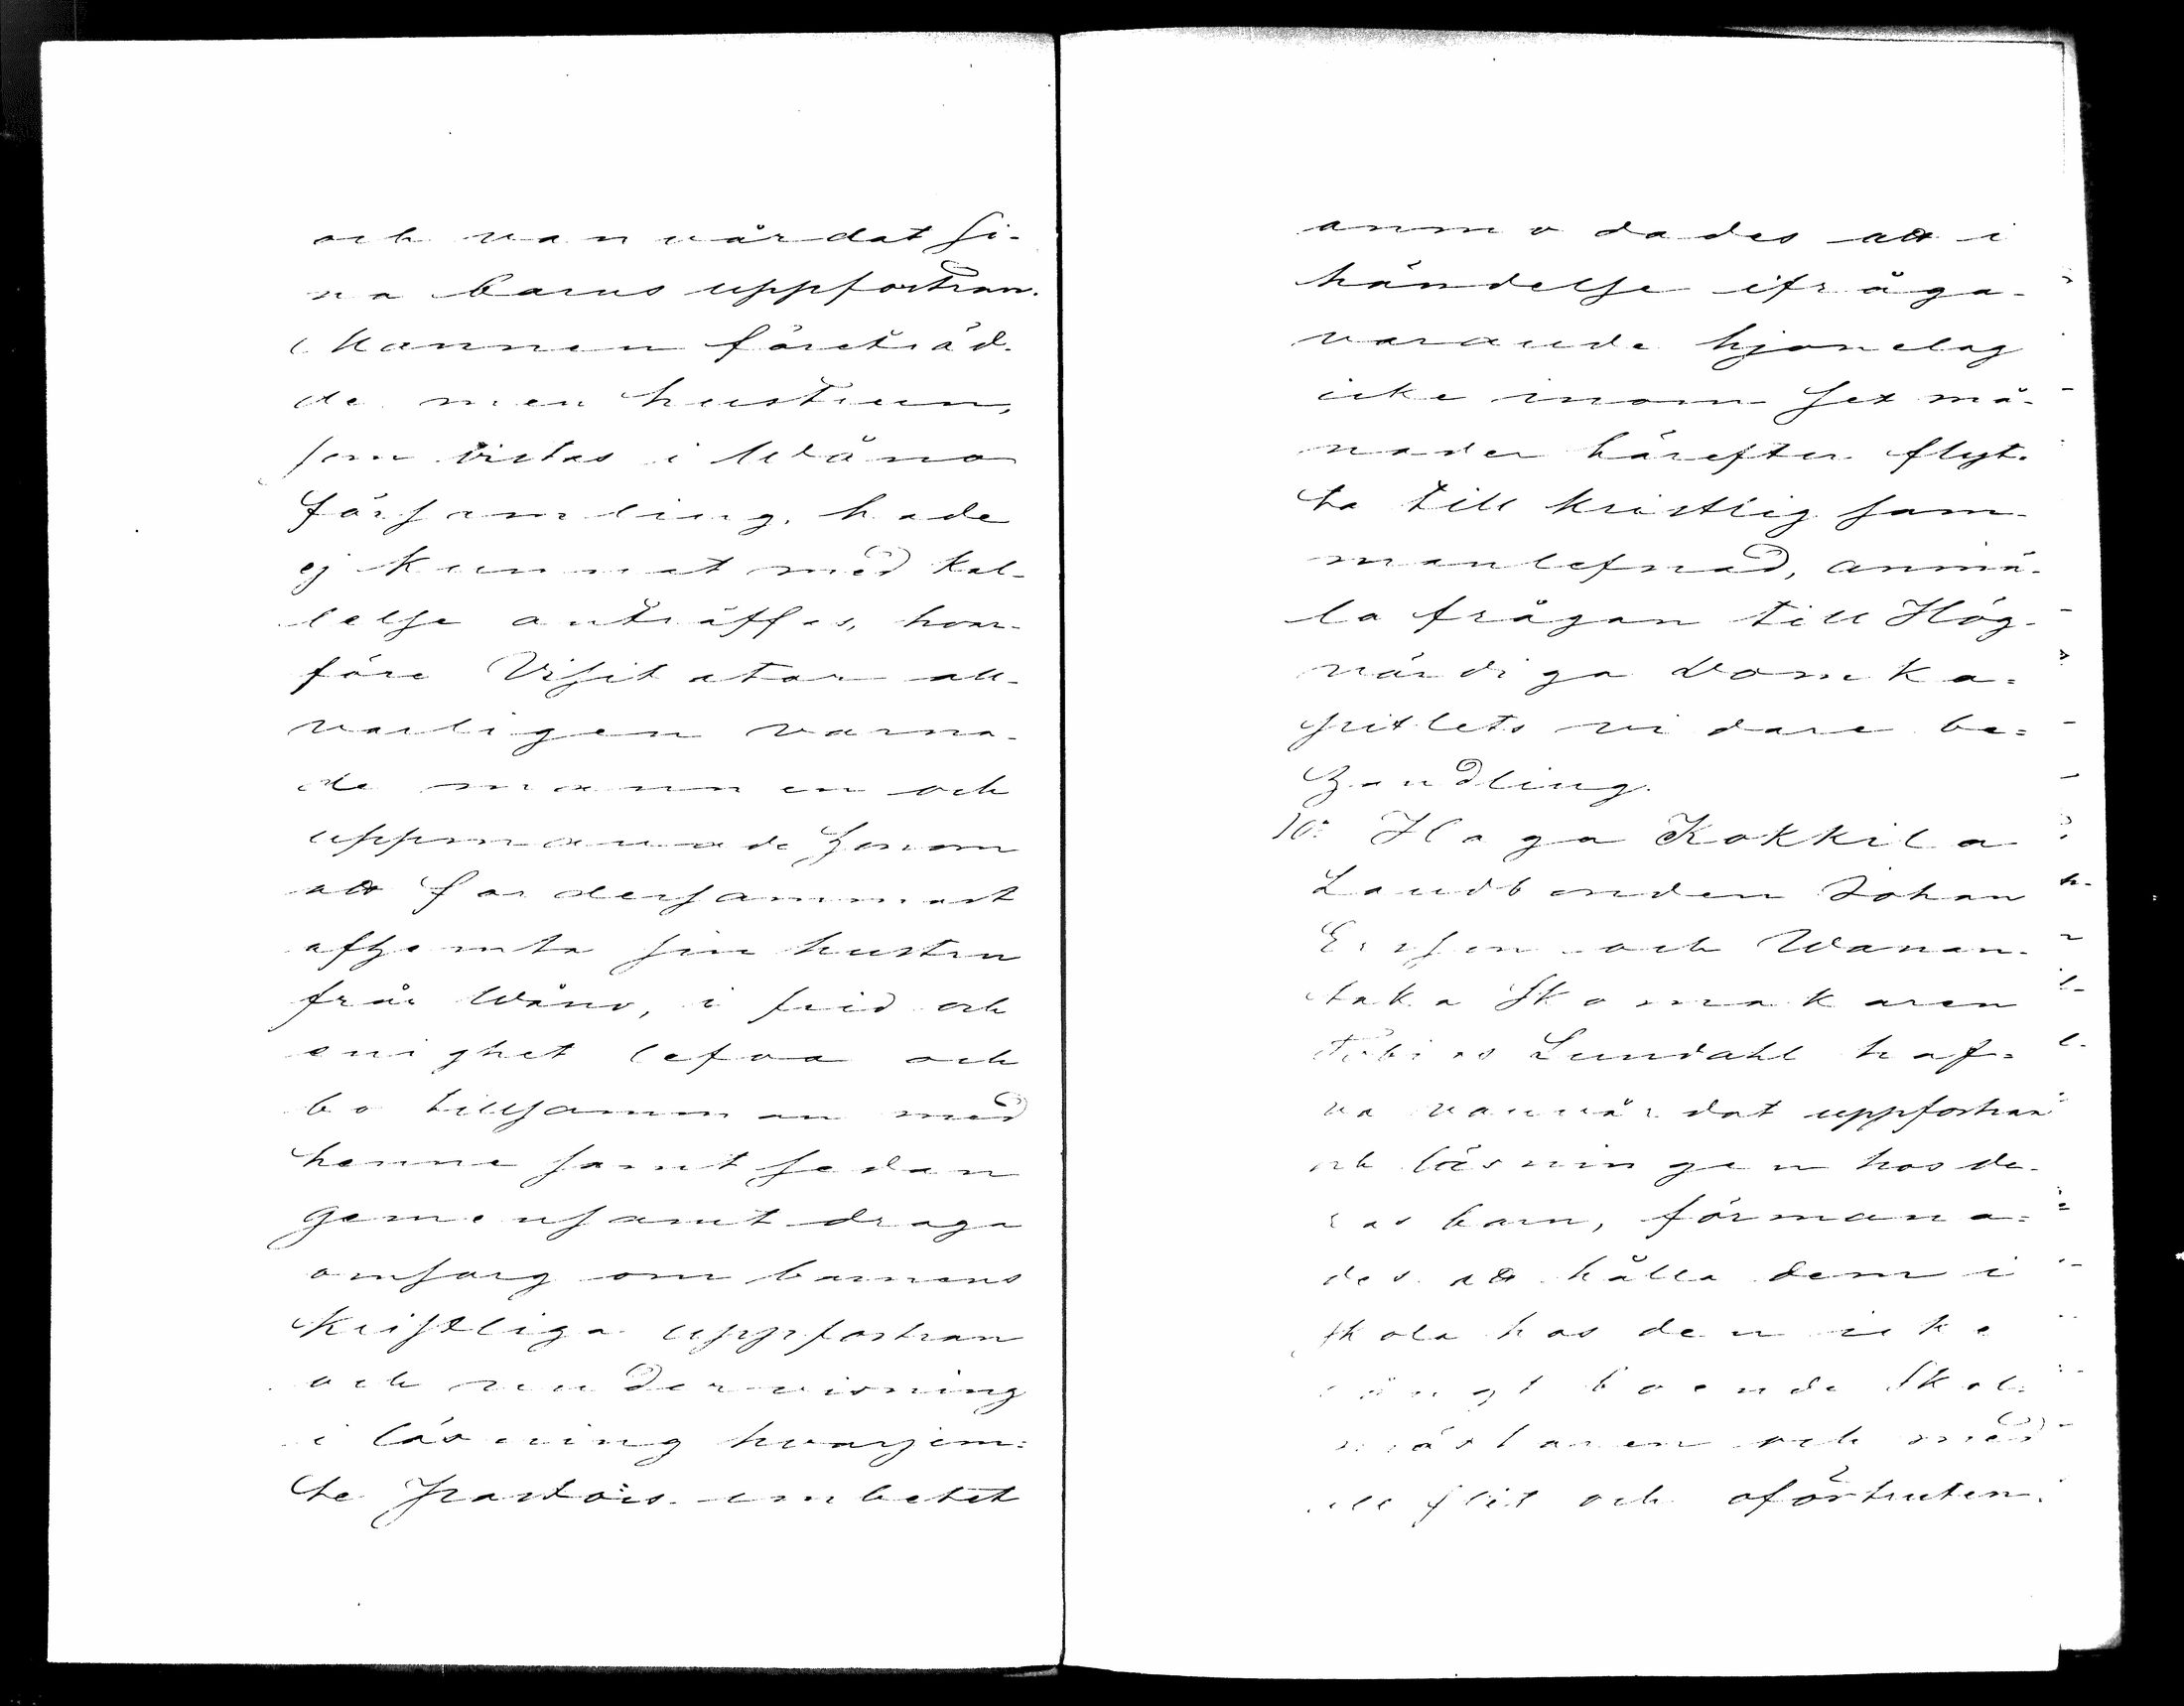 och vanvårdat si-
na barns uppfostran.
Mannen företräd-
de men hustrun,
som vistas i Wånå
församling, hade
ej kunnat med kal-
lelse anträffas, hvar-
före Visitator all-
varligen varna-
de mannen och
uppmanade honom
att fordersammast
afhemta sin hustru
från Wånå, i frid och
enighet lefva och
bo tillsamman med
henne samt sedan
gemensamt draga
omsorg om barnens
kristliga uppfostran
och undervisning
i läsning hvarjem=
te Pastors-embetet
anmodades att i
händelse ifråga-
varande hjonelag
icke inom sex må-
nader härefter flyt-
ta till kristlig sam-
manlefnad, anmä-
la frågan till Hög-
värdiga Domka=
pitlets vidare be=
handling.
10: Haga Kokkila
Landbonden Johan
Ersson och Wanan-
taka Skomakaren
Tobias Lundahl haf=
va vanvårdat uppfostran
och läsningen hos de-
ras barn, förmana=
des att hålla dem i
skola hos den icke
långt boende Skol-
mästaren och med
all flit och oförtruten